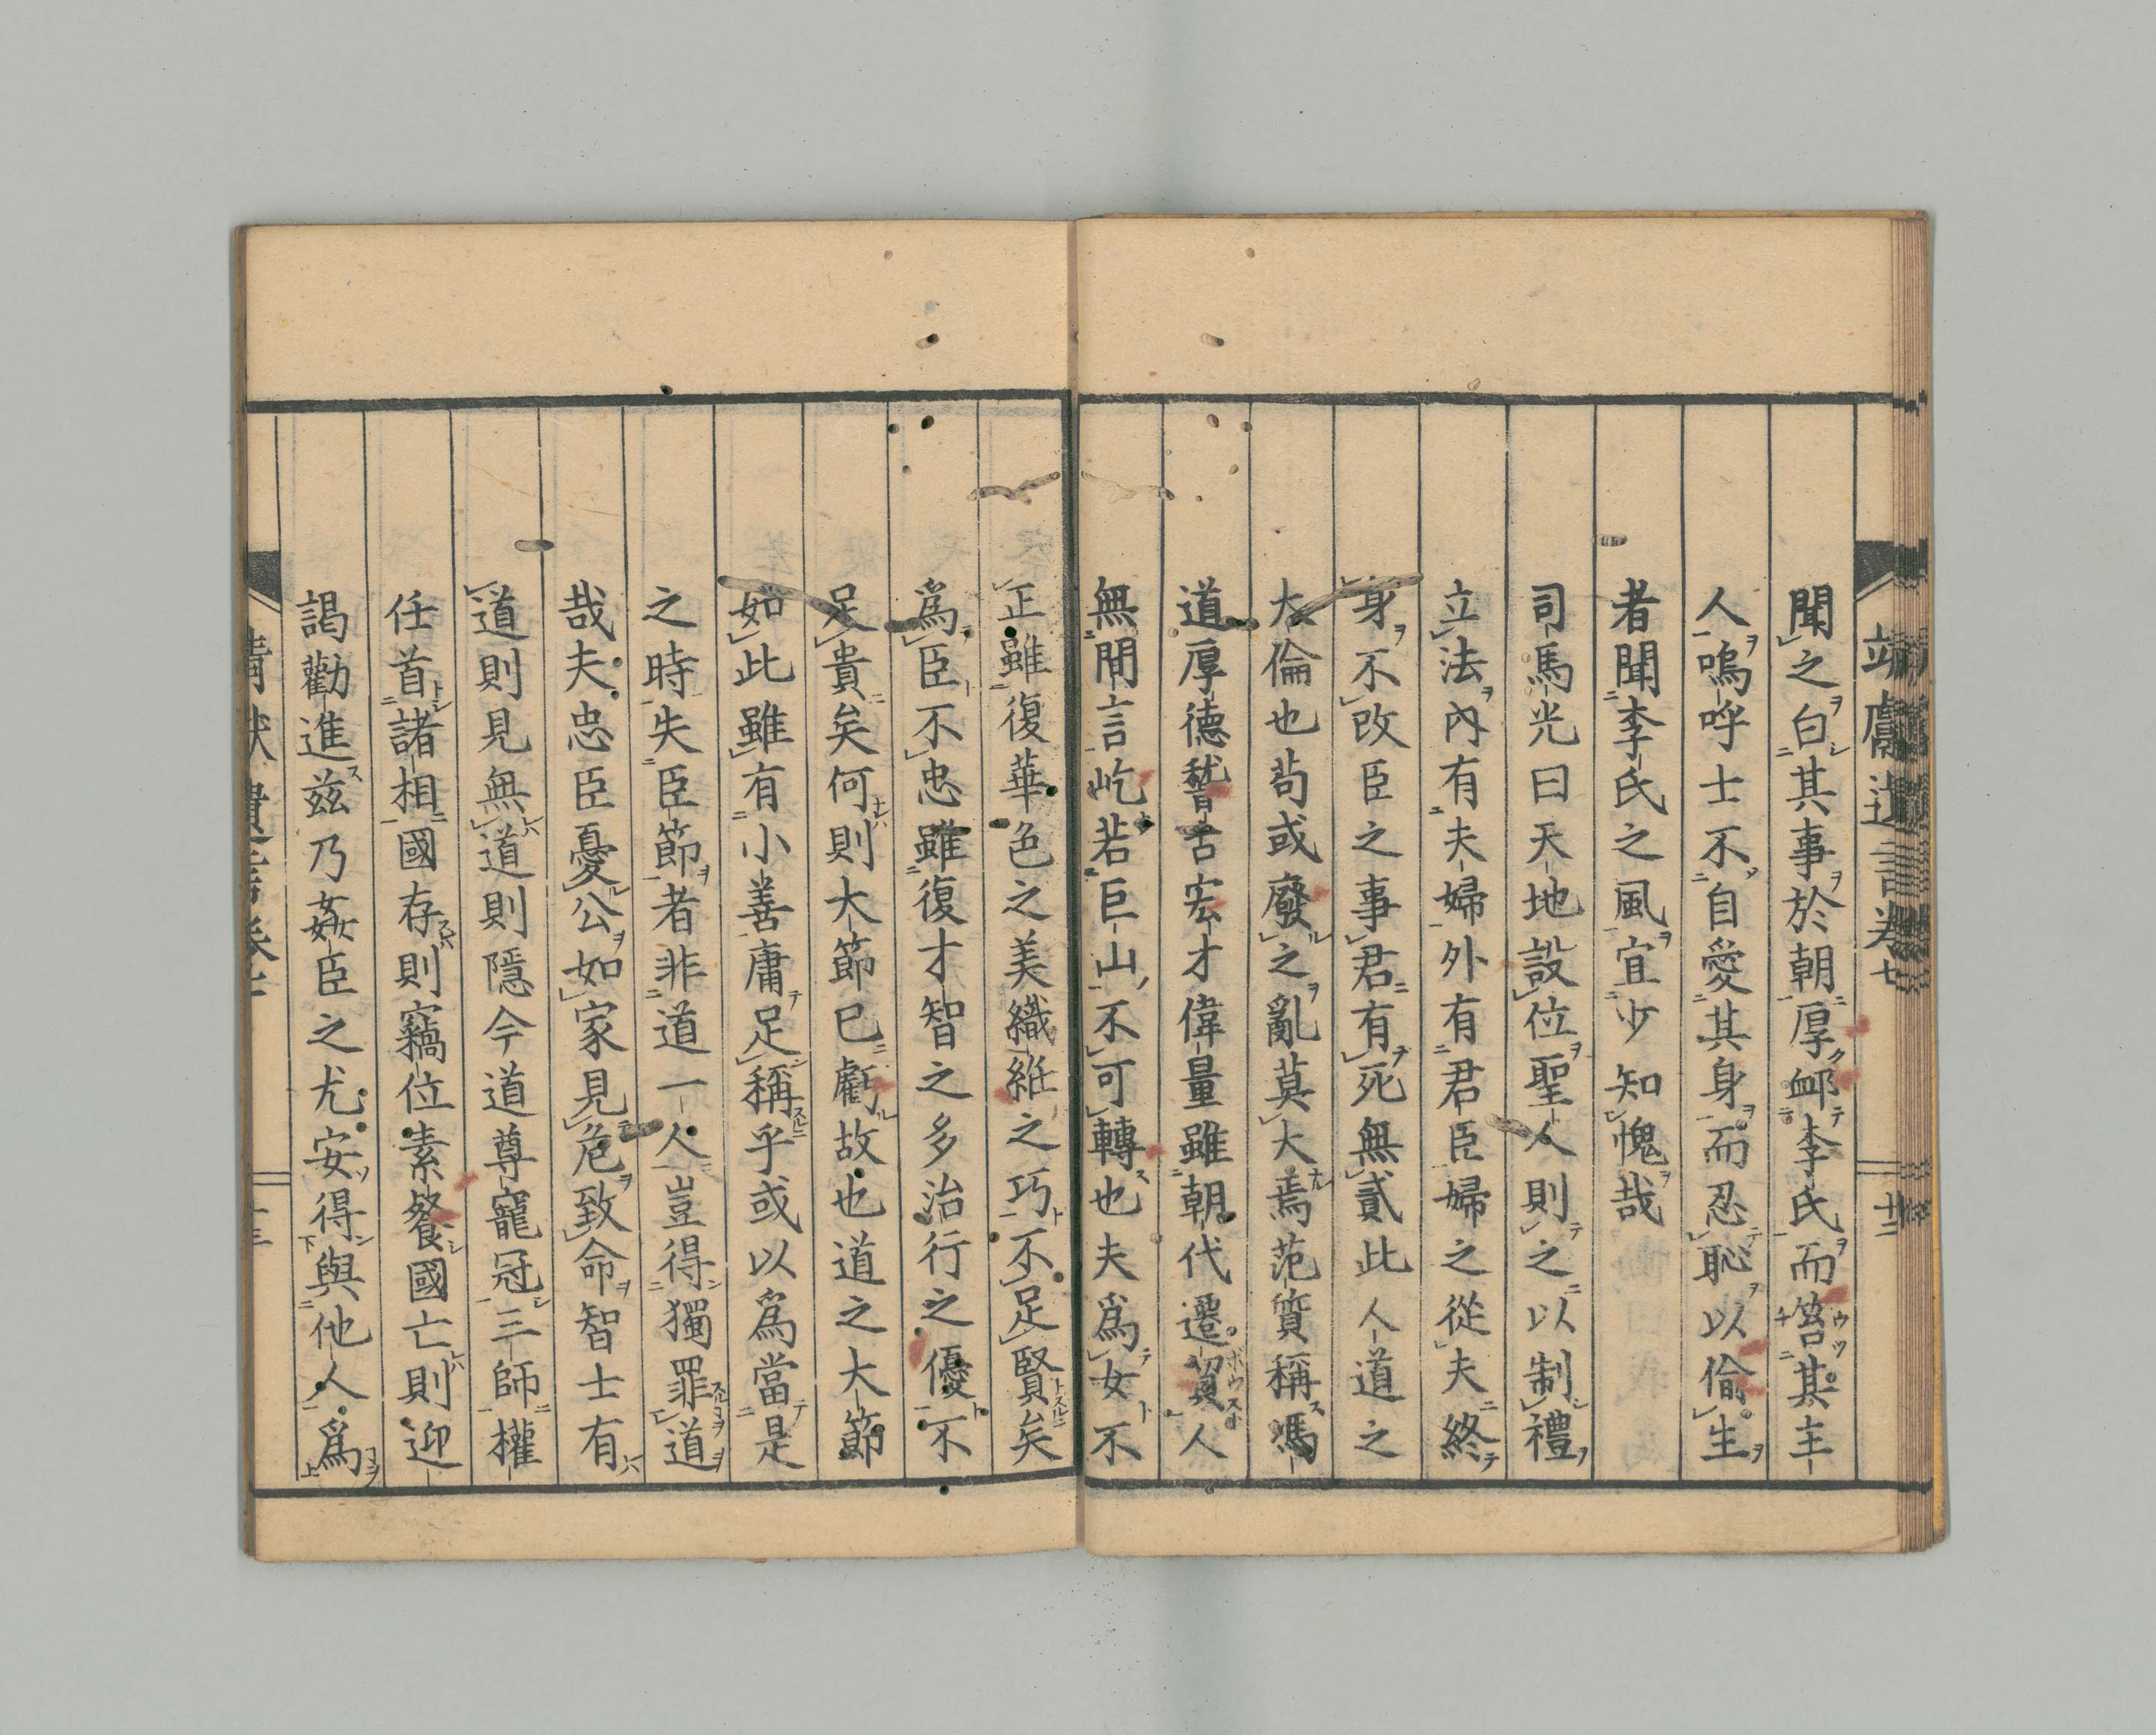 聞之白其事於朝厚䘏李氏而笞其主
人嗚呼士不自愛其身而忍恥以偷生
者聞李氏之風宜少知愧哉
司馬光曰天地設位聖人則之以制禮
立法內有夫婦外有君臣婦之從夫終
身不改臣之事君有死無貳此人道之
大倫也苟或廢之亂莫大焉范質稱馮
道厚德稽古宏才偉量雖朝代遷貿人
無間言屹若巨山不可轉也夫爲女不
正雖復華色之美織絍之巧不足賢矣
爲臣不忠雖復才智之多治行之優不
足貴矣何則大節已虧故也道之大節
如此雖有小善庸足稱乎或以爲當是
之時失臣節者非道一人豈得獨罪道
哉夫忠臣憂公如家見危致命智士有
道則見無道則隱今道尊寵冠三師權
任首諸相國存則竊位素餐國亡則迎
謁勸進茲乃姦臣之尤安得與他人爲